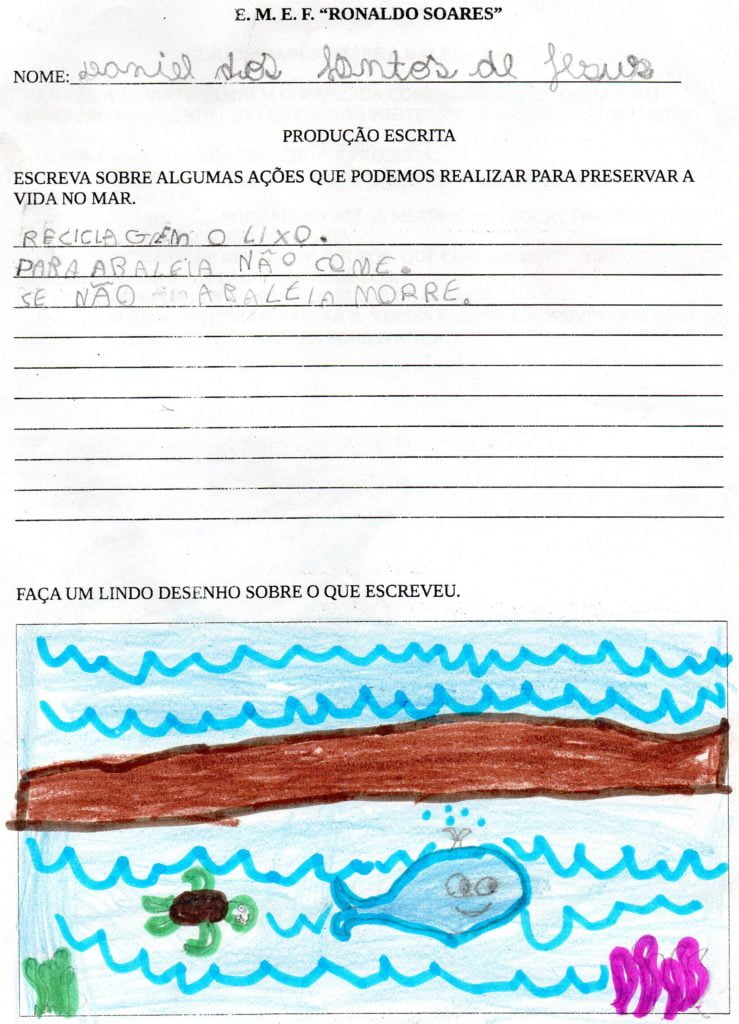 E. M. E. F. “RONALDO SOARES”
NOME: Daniel dos Santos de Jesus
PRODUÇÃO ESCRITA
ESCREVA SOBRE ALGUMAS AÇÕES QUE PODEMOS REALIZAR PARA PRESERVAR A
VIDA NO MAR.
RECICLAGEM O LIXO.
PARA ABALEIA NÃO COME.
SE NÃO ABALEIA MORRE.
FAÇA UM LINDO DESENHO SOBRE O QUE ESCREVEU.